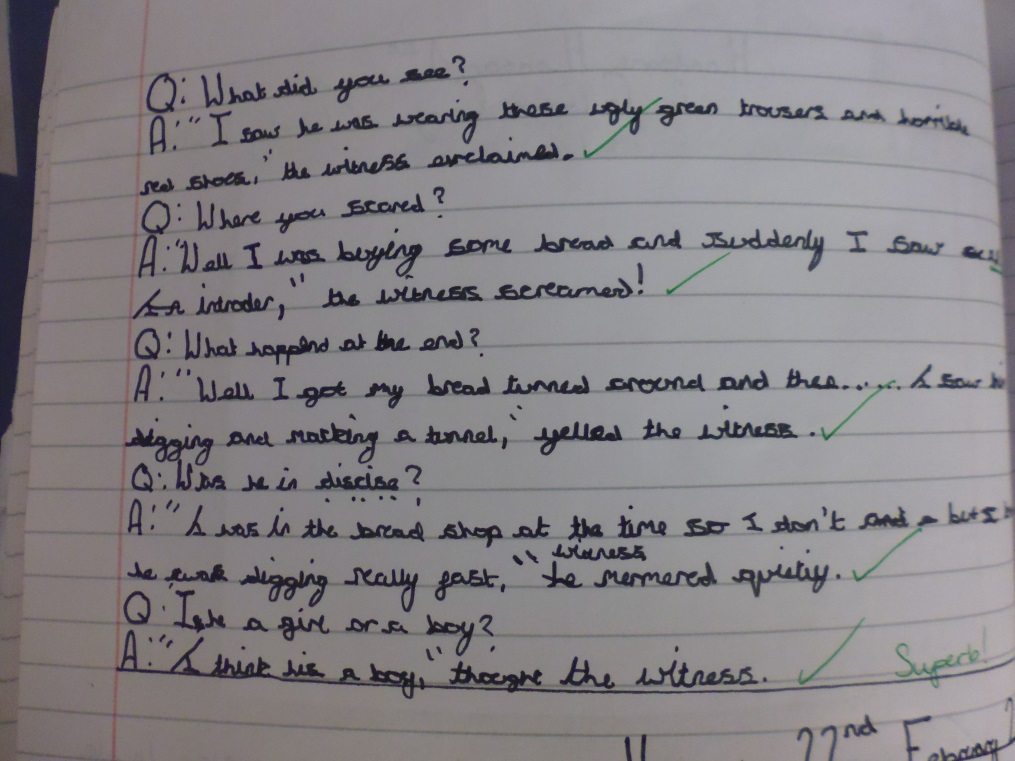 Q: What did you see?
A: "I saw he was wearing these ugly green trousers and horrible
red shoes," the witness exclaimed.
Q: Where you scared?
A: "Well I was buying some bread and suddenly I saw
intruder," the witness screamed!
Q: What happend at the end?
A: "Well I got my bread tunned around and then...... I saw
digging and making a tunnel," yelled the witness.
Q: Was he in discise?
A: "I was in the bread shop at the time so I don't but I
he digging really fast," the witness mermered quietly.
Q: Is he a girl or a boy?
A: "I think his a boy," thought the witness.
Superb!
22nd February